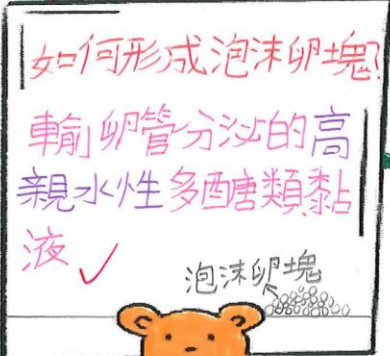 如何形成泡沫卵塊?
輸卵管分泌的高
親水性多醣類黏
液✓
泡沫卵塊